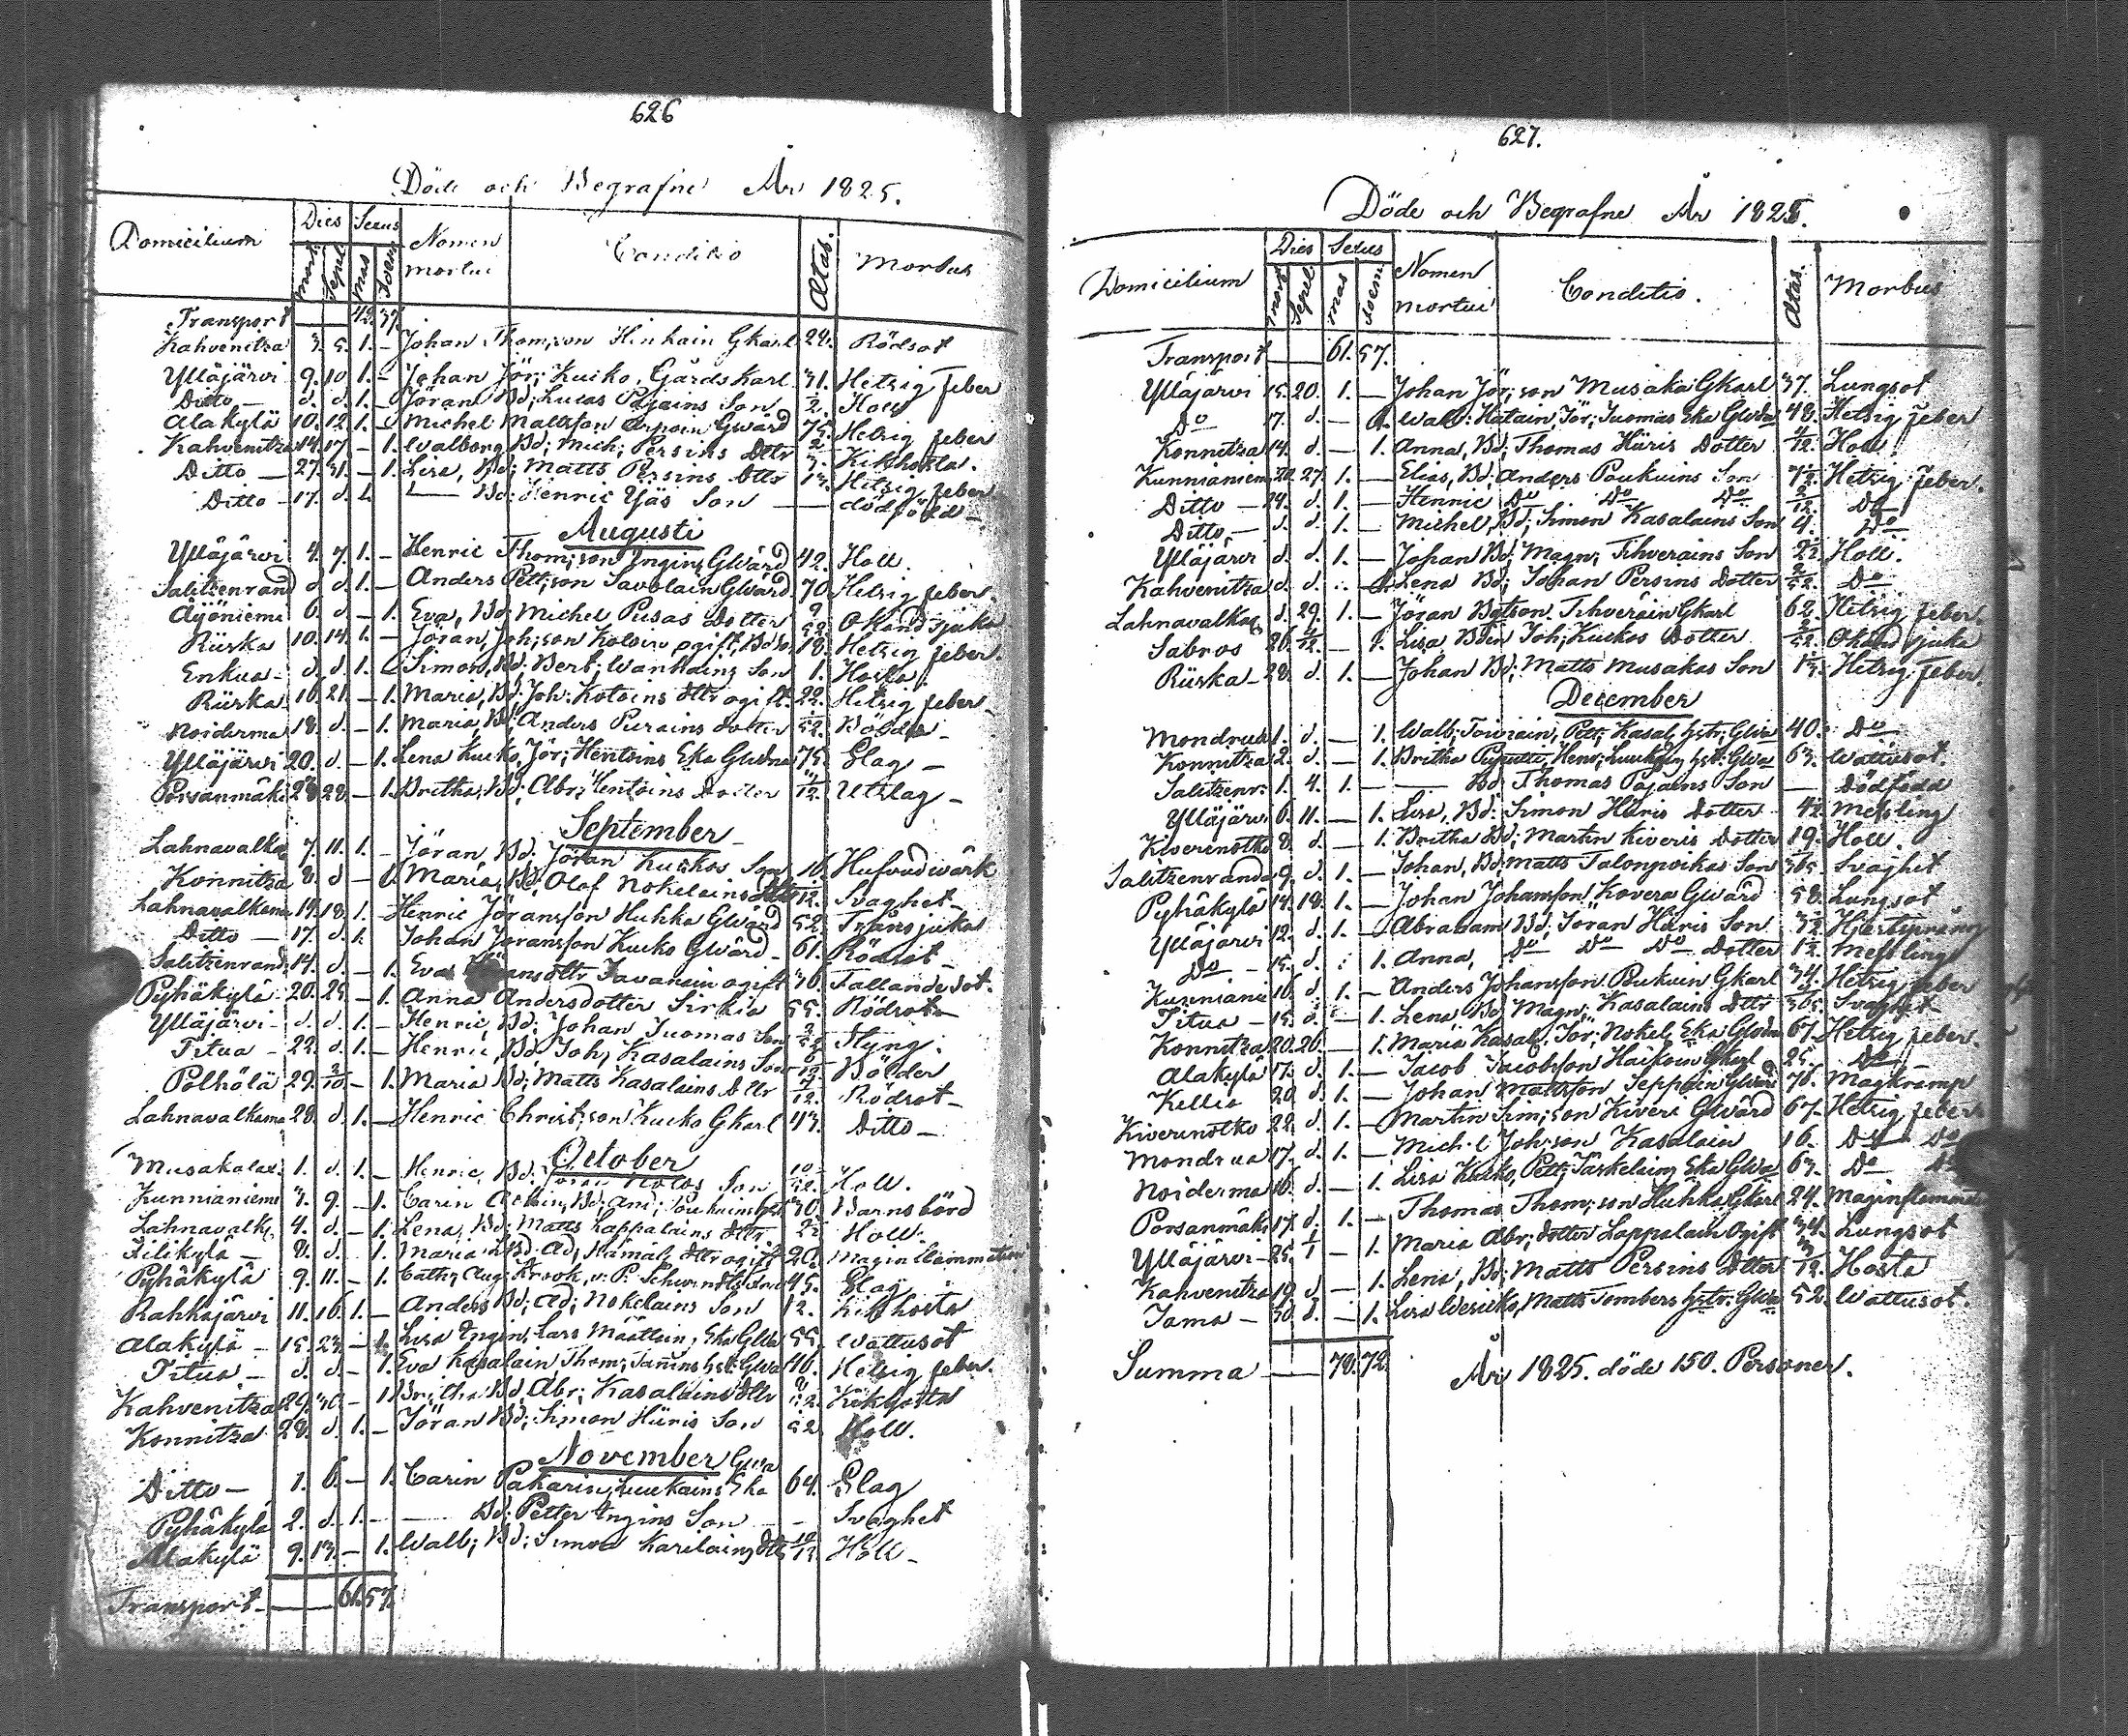 626
Döde och Begrafne År 1825.
Domicilium Dies Sexus Nomen mortui Conditio Ætas. Morbus
mort. Sepel. mas foem.
Transport — 42. 37.
Kahvenitza 3. 5. 1. — Johan Thom;son Hinkain Gkarl 22. Rödsot
Ylläjärvi 9. 10 1. — Johan Jör; Kucko, Gårdskarl 31. Hetsig feber
Ditto — d. d. 1. Jöran Bd; Lucas Pajains Son Håll
Alakylä 10. 12. 1. Michel Mattsson Gwärd 75. Hetsig feber
Kahvenitza 14. 17 — 1. Walborg Bd; Mich; Persins Dttr Kikhosta.
Ditto — 27. 31. — 1. Lisa, Bd; Matts Persins Dttr Hetsig feber
Ditto — 17. d. 1. — Bd: Henric Yjäs Son — dödfödd —
Augusti
Ylläjärvi 4. 7. 1. — Henric Thom;son Ingins Gwärd 42. Håll.
Salitzenrand d. d. 1. — Anders Pett;son Savolain Gwärd 70. Hetsig feber.
Äyöniemi 6. d — 1. Eva, Bd; Michel Pusas Dotter Okänd sjuka
Riiska 10. 14. 1. — Jöran, Joh;son ogift, 18. Hetsig feber.
Enkua — d. d. 1. Simon, Bd; Bert; Wanhains Son 1. Hosta
Riiska 16. 21. — 1. Maria, Bd; Joh: Kotoins Dttr ogift. 22. Hetsig feber
Noiderma 18. d. — 1. Maria, Bd; Anders Purains Dotter Bölder —
Ylläjärvi 20. d. — 1. Lena Kucko, Jör; Hentoins Eka Gwdna 75. Slag —
Porsanmäki 28 — 1. Britha, Bd; Abr; Hentoins Dotter 11/12. Utslag —
September
Lahnavalka 7. 11. 1. — Jöran, Bd. Jöran Kuckos Son 16. Hufvudwärk
Konnitza 8. d — 1. Maria, Bd; Olof Nokelains Dttr Svaghet —
Lahnavalkama 18. 1. — Henric Jöransson Huhka Gwärd 52. Trånsjuka
Ditto — 17. d. 1. Johan Jöransson Kucko Gwärd — 61. Rödsot —
Salitzenrand. 14. d. — 1. Eva Javanain ogift 36. Fallandesot.
Pyhäkylä 20. 25. — 1. Anna Andersdotter Sirkia 55. Rödsot —
Ylläjärvi — d. d. 1. — Henric, Bd; Johan Tuomas Son Styng.
Titua — 22. d. 1. — Henric, Bd Joh; Kasalains Son Bölder
Pölhölä 29. 2/10 — 1. Maria Bd; Matts Kasalains Dttr Rödsot —
Lahnavalkama 28. d. 1. — Henric Christ;son Kucko Gkarl 43. Ditto —
October
Musakala. 1. d. 1. — Henric, Bd. Son Håll.
Kunnianiemi 3. 9. — 1. Carin Bd; And; 30. Barnsbörd
Lahnavalk. 4. d. — 1. Lena, Bd: Matts Lappalains Dttr Håll.
Kilikylä — 8. d. 1. Maria Bd. Ad; Hämäl; Dttr ogift 20. Maginflammation
Pyhäkylä 9. 11. — 1. Cath; Aug: Krook, v. P: 45. Slag
Rahkajärvi 11. 16. 1. — Anders Bd; Ad; Nokelains Son 12. Kikhosta
Alakylä — 15. 23. — 1. Lisa Ingin, Lars Määttain, Eka Gwa 55. Wattusot
Titua — d. d. — 1. Eva Kasalain Thom; Gwa 46. Hetsig feber.
Kahvenitza 29. 30. — 1. Britha Bd, Abr; Kasalains Dttr Kikhosta
Konnitza 28. d. 1. — Jöran Bd; Simon Häris Son Håll.
November
Ditto — 1. 6. — 1. Carin Pakarin, Luukains Eka Gwa 64. Slag
Pyhäkylä 2. d. 1. — — Bd; Petter Ingins Son — — Svaghet
Alakylä 9. 13. — 1. Walb; Bd; Simon Karilains Dttr 10/12 Håll —
Transport — 61. 57.
627.
Döde och Begrafne År 1825.
Domicilium Dies Sexus Nomen mortui Conditio. Ætas. Morbus
mort Sepel. mas foem
Transport — 61. 57.
Ylläjärvi 15. 20. 1. — Johan Jör;son Musaka Gkarl 37. Lungsot
Do 17. d. — 1. Walb: Hatain, Jör; Tuomas Eka Gwdna 48. Hetsig feber
Konnitza 14. d. — 1. Anna, Bd; Thomas Häris Dotter 4/12. Håll
Kunnianiemi 20. 27. 1. — Elias, Bd; Anders Poukuins Son 7½ Hetsig feber.
Ditto — 24. d. 1. — Henric Do Do Do Do
Ditto, — d. d. 1. — Michel, Bd; Simon Kasalains Son 4. Do
Ylläjärvi d. d. 1. — Johan Bd; Magn; Tihverains Son Håll.
Kahvenitza d. d. 1. Lena Bd; Johan Persins Dotter Do
Lahnavalka d. 29. 1. — Jöran Batson Tihverain Gkarl 62. Hetsig feber.
Sabros 26. 4/12. — 1. Lisa, Bden Joh; Kuckos Dotter Okänd sjuka
Riiska — 28. d. 1. — Johan Bd; Matts Musakas Son Hetsig feber.
December
Mondrua 1. d. — 1. Walb; Pett; Kasal; hstr; Gwa 40. Do
Konnitza 2. d. — 1. Britha Puputti, Henr; hst; Gwa 63. Wattusot
Salitzenr: 1. 4. 1. — — Bd Thomas Pajains Son — Dödfödd
Ylläjärvi 6. 11. — 1. Lisa, Bd: Simon Häris Dotter 4½ Messling
Kiverenotko 8. d. — 1. Britha Bd; Martin Kiveris Dotter 19. Håll.
Salitzenranda 9. d. 1. — Johan, Bd; Matts Talonpoikas Son Svaghet
Pyhäkylä 14. 18. 1. — Johan Johansson Kovera Gwärd 58. Lungsot
Ylläjärvi 12. d. 1. — Abraham Bd; Jöran Häris Son Hjertsprång
Do — 15. d. 1. Anna, Do Do Do Dotter Messling
Kunniani 16. d. 1. — Anders Johansson Poukuin Gkarl 34. Hetsig feber
Titua — 15. d. — 1. Lena, Bd Magn; Kasalains Dttr Svaghet —
Konnitza 20. 26. — 1. Maria Kasal; Jör; Nokel; Eka Gwdna 67. Hetsig feber.
Alakylä 17. d. 1. — Jacob Jacobsson Haikoin Gkarl 25. Do
Kellio 20. d. 1. — Johan Mattsson Seppain Gwärd 76. Magkramp
Kiverenotko 22. d. 1. — Martin Sim;son Kiveri Gwärd 67. Hetsig feber
Mondrua 17. d. 1. — Michel Joh;son Kasalain 16. Do Do
Noiderma 16. d. — 1. Lisa Kucko, Pett; Eka Gwa 63. Do Do
Porsanmäki 17. d. 1. — Thomas Thom;son Huhka Gkarl 24. Maginflammat
Ylläjärvi — 25. 1/1 — 1. Maria Abr; dotter Lappalain Ogift 34. Lungsot
Kahvenitza 19. d — 1. Lena, Bd; Matts Persins Dotter Hosta
Jama — 30. d. — 1. Lisa Matts Tombers hstr. Gwa 52. Wattusot.
Summa — 78. 72.
År 1825. döde 150. Personer.